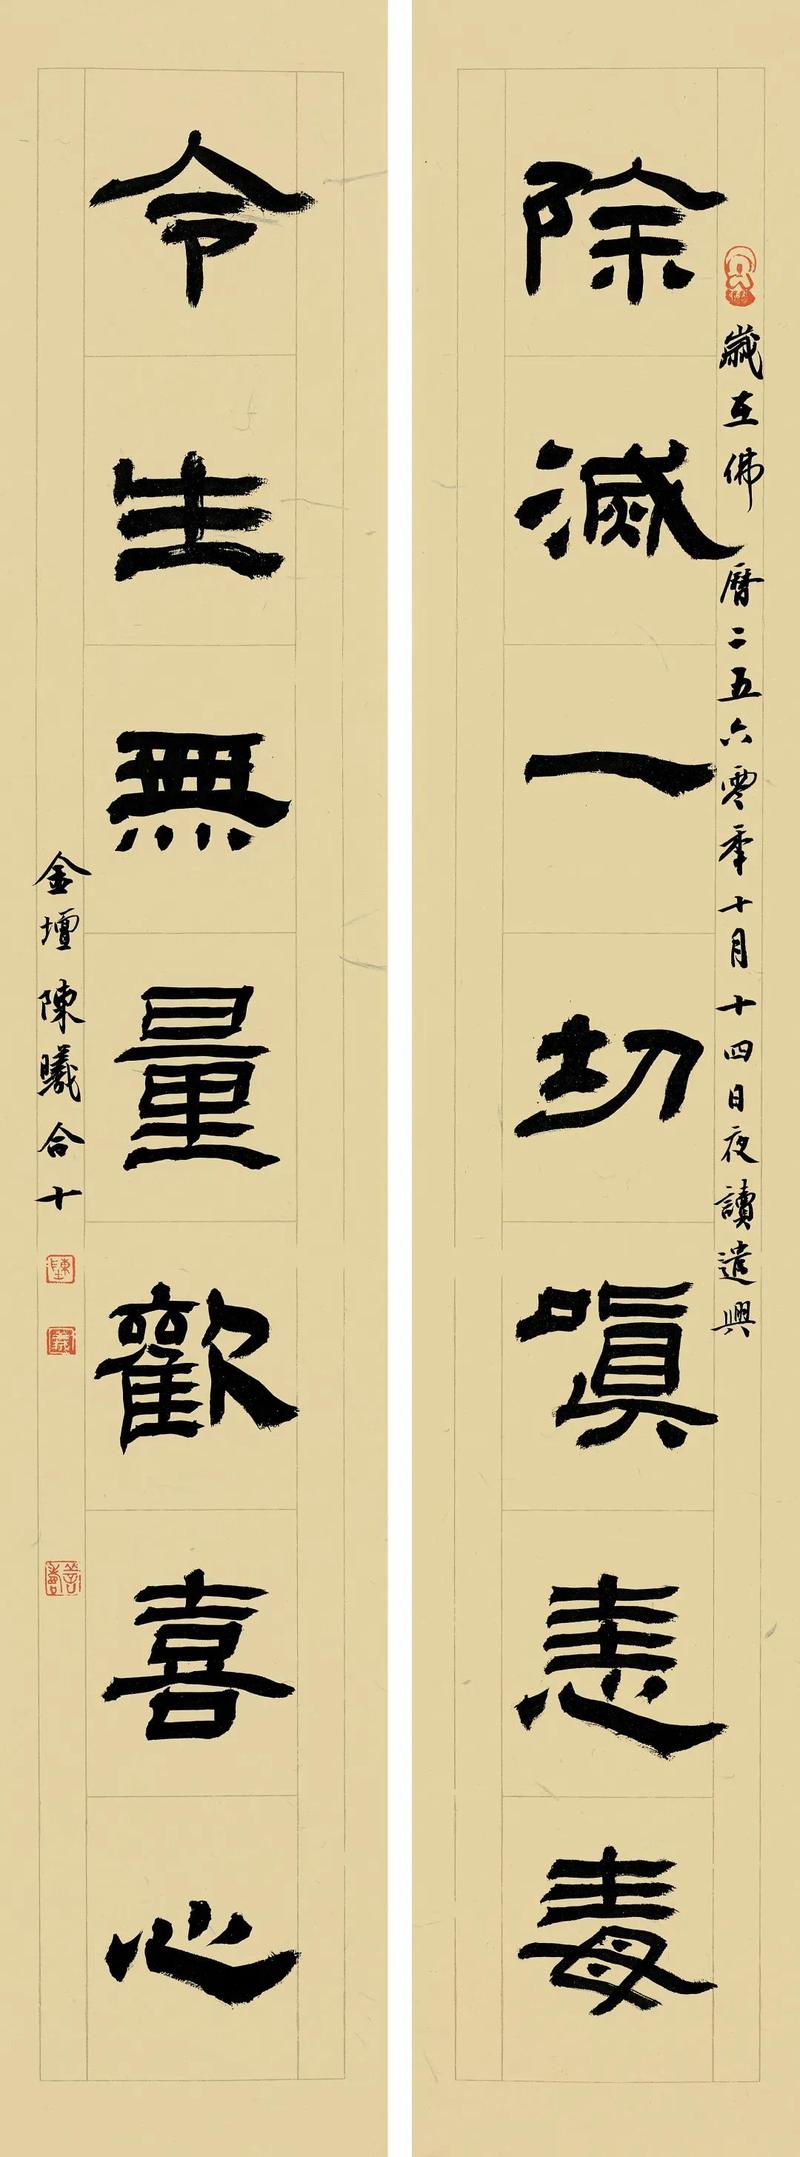 除滅一切嗔恚毒
歲在佛曆二五六零年十月十四日夜讀遣興
令生無量歡喜心
金壇陳曦合十